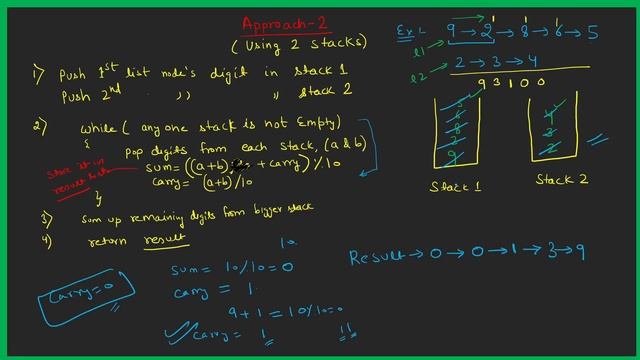 Approach-2
(Using 2 stacks)
1) Push 1st list node's digit in stack 1
Push 2nd ,, ,, stack 2
2) while( any one stack is not Empty)
{
pop digits from each stack, (a & b)
sum= ((a+b) + carry) % 10
carry= (a+b)/10
}
Store it in
result
3) sum up remaining digits from bigger stack
4) return result
Carry=0
10
sum= 10%10=0
carry = 1
9+1=10%10=0
carry= 1
11
Ex:-
1 1 1
l1 9→2→8→6→5
l2 2→3→4
9 3 1 0 0
5
6
8
2
9
Stack 1
4
3
2
Stack 2
Result→0→0→1→3→9